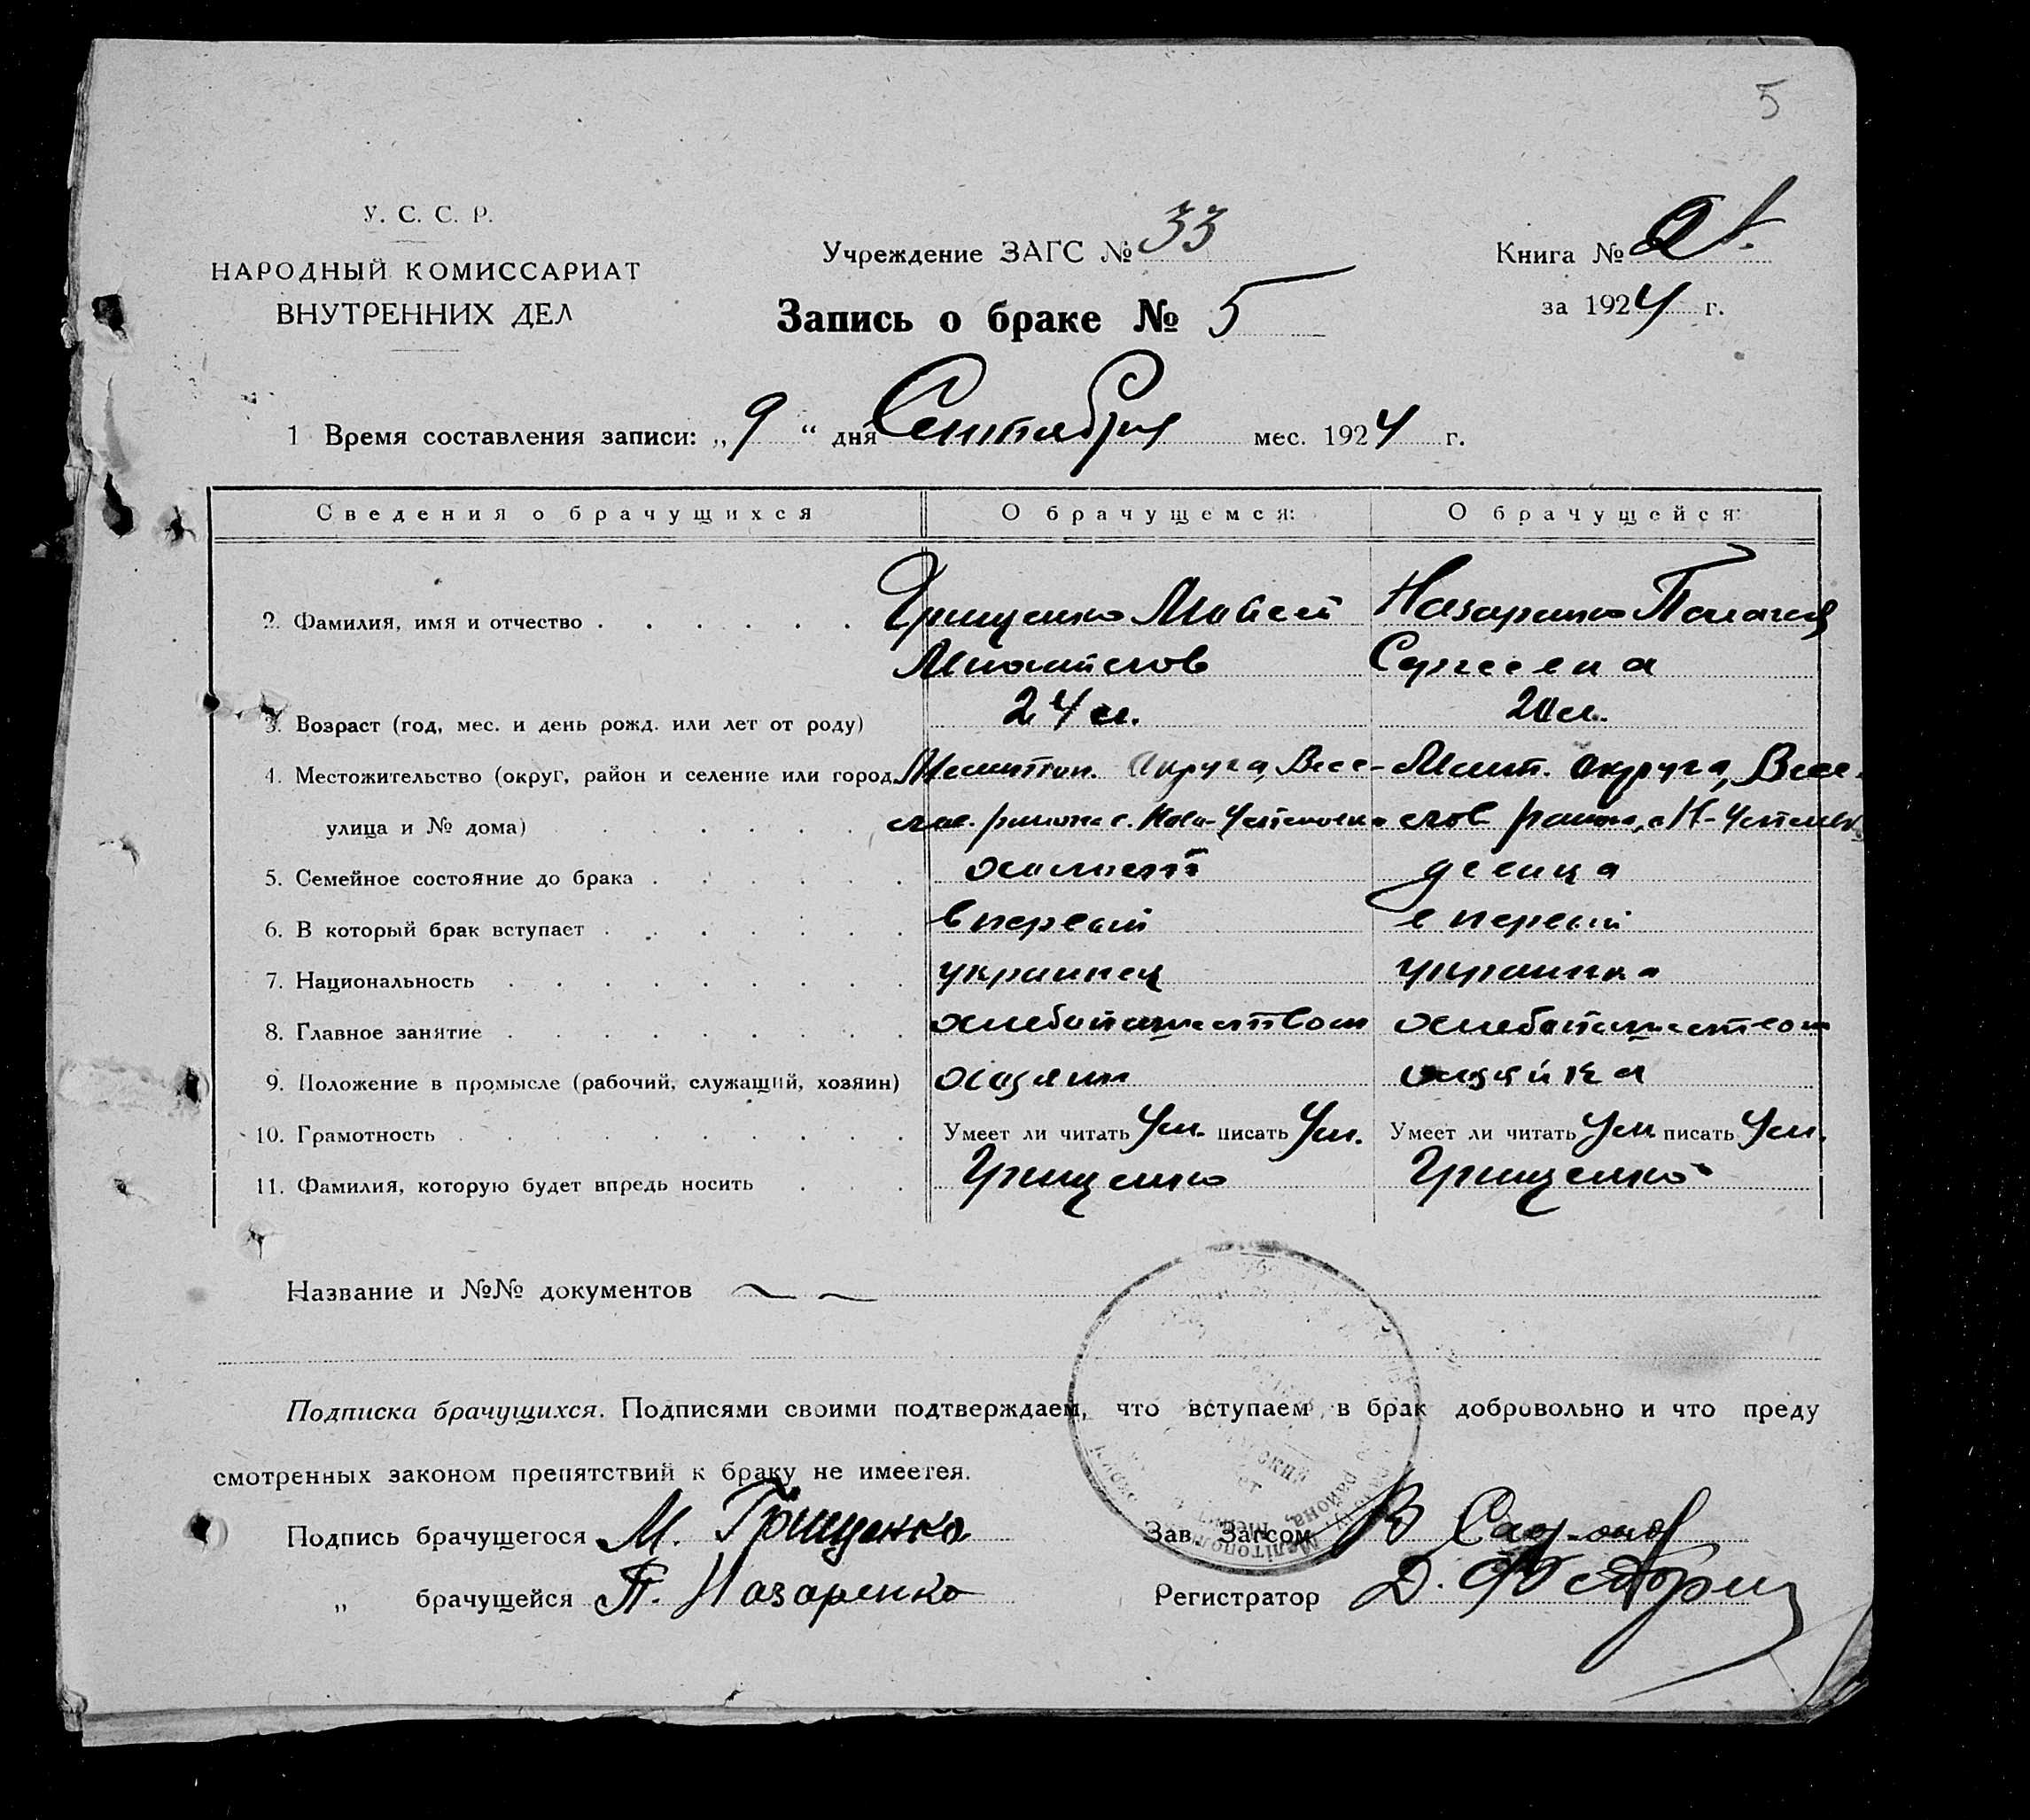 5
У. С. С. Р.
НАРОДНЫЙ КОМИССАРИАТ
ВНУТРЕННИХ ДЕЛ
Учреждение ЗАГС № 33
Книга №
за 1924 г.
Запись о браке № 5
1 Время составления записи: „ 9 “ дня Сентября мес. 1924 г.
Сведения о брачущихся О брачущемся: О брачущейся:
2. Фамилия, имя и отчество Грищенко Мойсей Назаренко Палагея
Сергеевна
3. Возраст (год, мес. и день рожд. или лет от роду) 24 л. 20 л.
4. Местожительство (округ, район и селение или город, Мелитоп. Округа, Весе- Мелит. Округа, Весе-
улица и № дома) района с. Ново-Успеновка лов района, с Н-Успеновк
5. Семейное состояние до брака холост девица
6. В который брак вступает в первый в первый
7. Национальность украинец украинка
8. Главное занятие хлебопашеством хлебопашеством
9. Положение в промысле (рабочий, служащий, хозяин) хозяин хозяйка
10. Грамотность Умеет ли читать Ум. писать Ум. Умеет ли читать Ум. писать Ум.
11. Фамилия, которую будет впредь носить Грищенко Грищенко
Название и №№ документов
Подписка брачущихся. Подписями своими подтверждаем, что вступаем в брак добровольно и что преду
смотренных законом препятствий к браку не имеется.
Подпись брачущегося М. Грищенко Зав. Загсом В
„ брачущейся П. Назаренко Регистратор Д.
района,